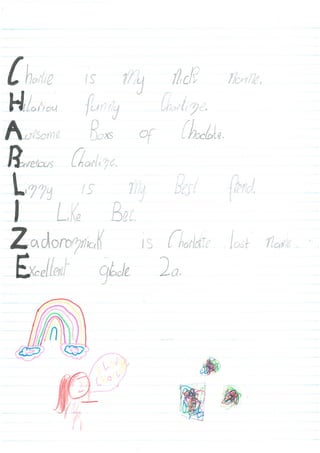 Charlie is my nick name.
Hilariou funny Charlize.
Awesome Boxs of Choclate.
Ravelous Charlize.
Lizzy is my Best frend.
I Like Bec.
Zadoroznak is Charlotte last name.
Excellent grade 2a.